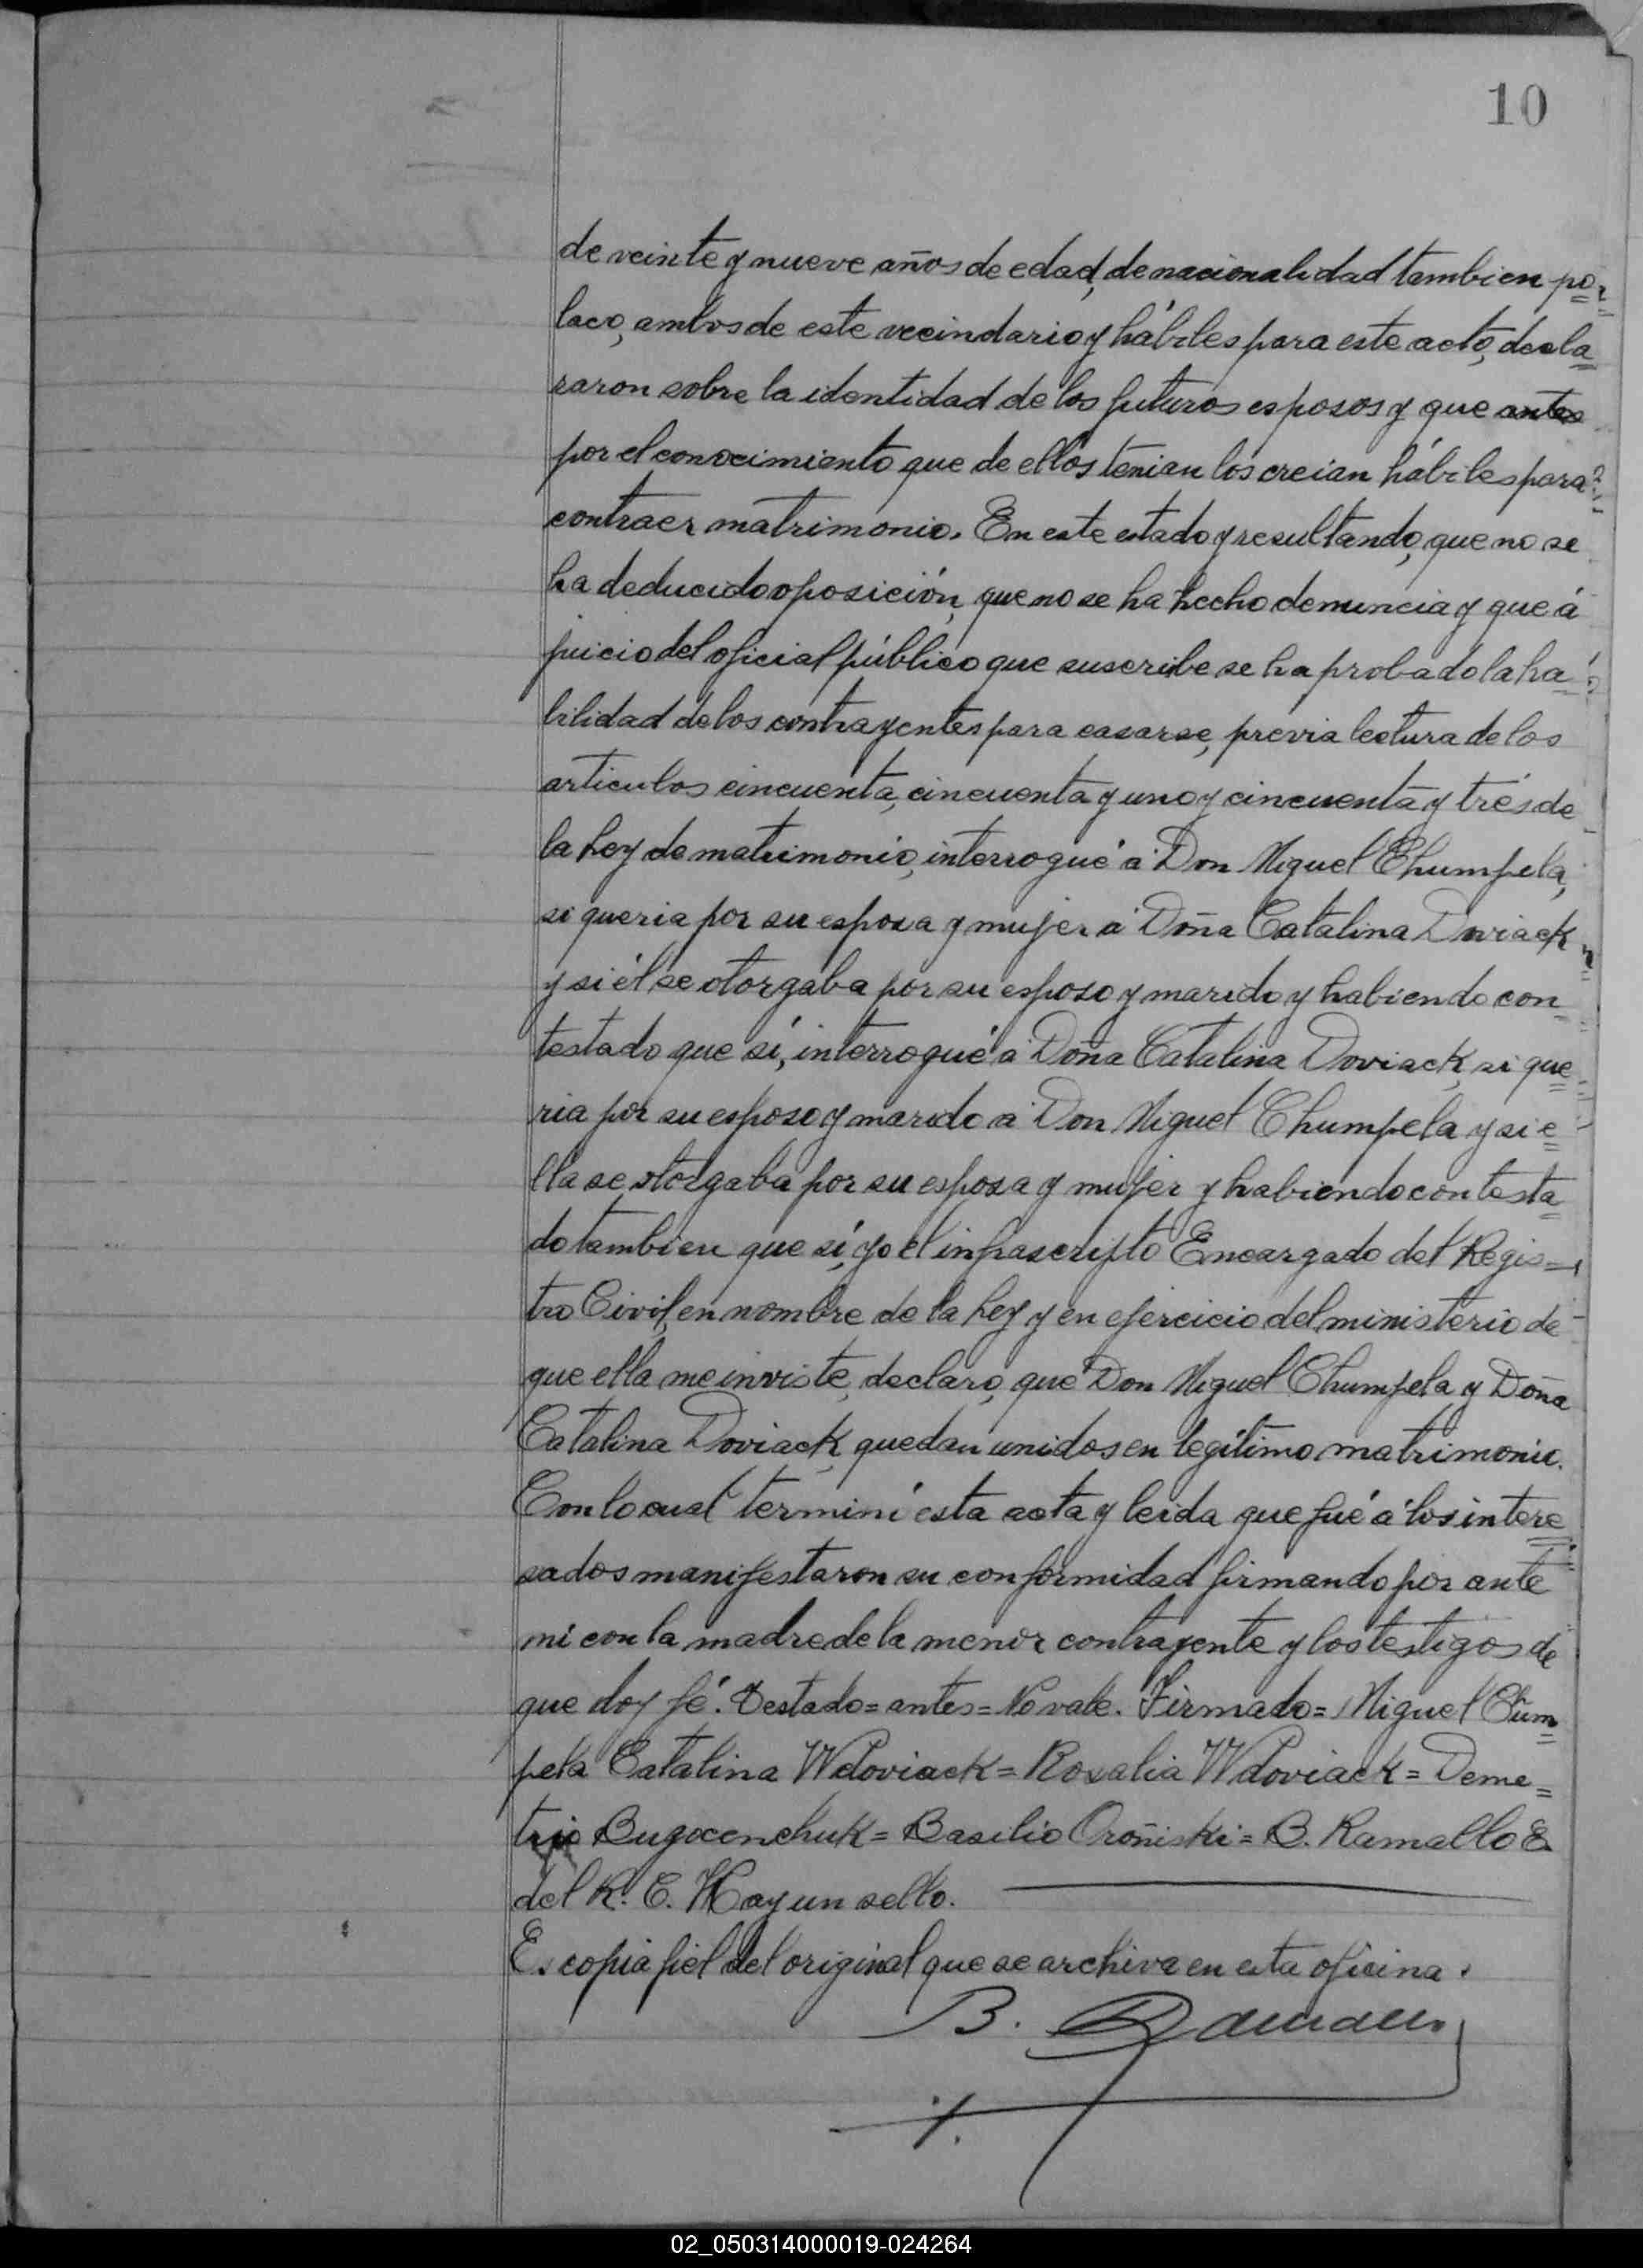 10
de veinte y nueve años de edad, de nacionalidad tambien po=
laco, ambos de este vecindario y hábiles para este acto, decla=
raron sobre la identidad de los futuros esposos y que antes
por el conocimiento que de ellos tenian los creian hábiles para
contraer matrimonio. En este estado y resultando, que no se
ha deducido oposición, que no se ha hecho denuncia y que á
juicio del oficial público que suscribe se ha probado la ha=
bilidad de los contrayentes para casarse, previa lectura de los
articulos cincuenta, cincuenta y uno y cincuenta y trés de
la Ley de matrimonio, interrogué á Don Miguel Chumpela,
si queria por su esposa y mujer á Doña Catalina Doviack,
y si él se otorgaba por su esposo y marido y habiendo con=
testado que sí, interrogué á Doña Catalina Doviack, si que=
ria por su esposo y marido á Don Miguel Chumpela y si e=
lla se otorgaba por su esposa y mujer y habiendo contesta=
do tambien que sí, yo el infrascripto Encargado del Regis=
tro Civil, en nombre de la Ley y en ejercicio del ministerio de
que ella me inviste, declaro, que Don Miguel Chumpela y Doña
Catalina Doviack, quedan unidos en legítimo matrimonio.
Con lo cual terminé esta acta y leida que fué á los intere=
sados manifestaron su conformidad firmando por ante
mi con la madre de la menor contrayente y los testigos de
que doy fé. Testado=antes=No vale. Firmado= Miguel Chum=
pela Catalina Wdoviack= Rosalia Wdoviack= Deme=
trio Bugocenchuk= Basilio Oroñiski= B. Ramallo E.
del R. C. Hay un sello.
Es copia fiel del original que se archiva en esta oficina.
B. Ramallo
02_050314000019-024264